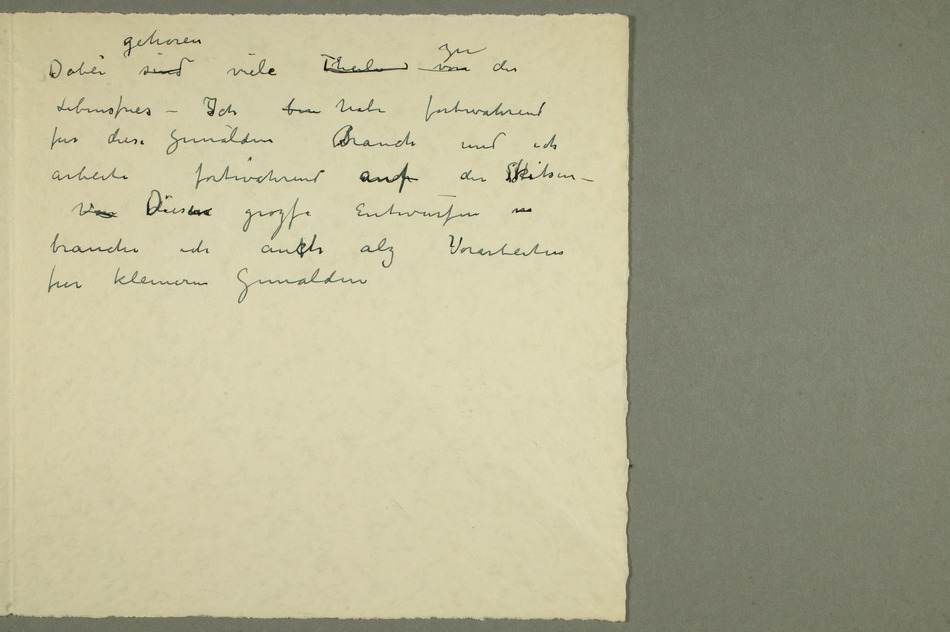 gehoren zu
Dabei sind viele Theile von der
Lebensfries – Ich bin habe fortwahrend
fur diese Gemälden Brauch und ich
arbeite fortwährend auf der Skitsen –
Von Diesen grozfe Entwurfen
brauche ich auch alz Vorarbeiten
fur kleineren Gemalden